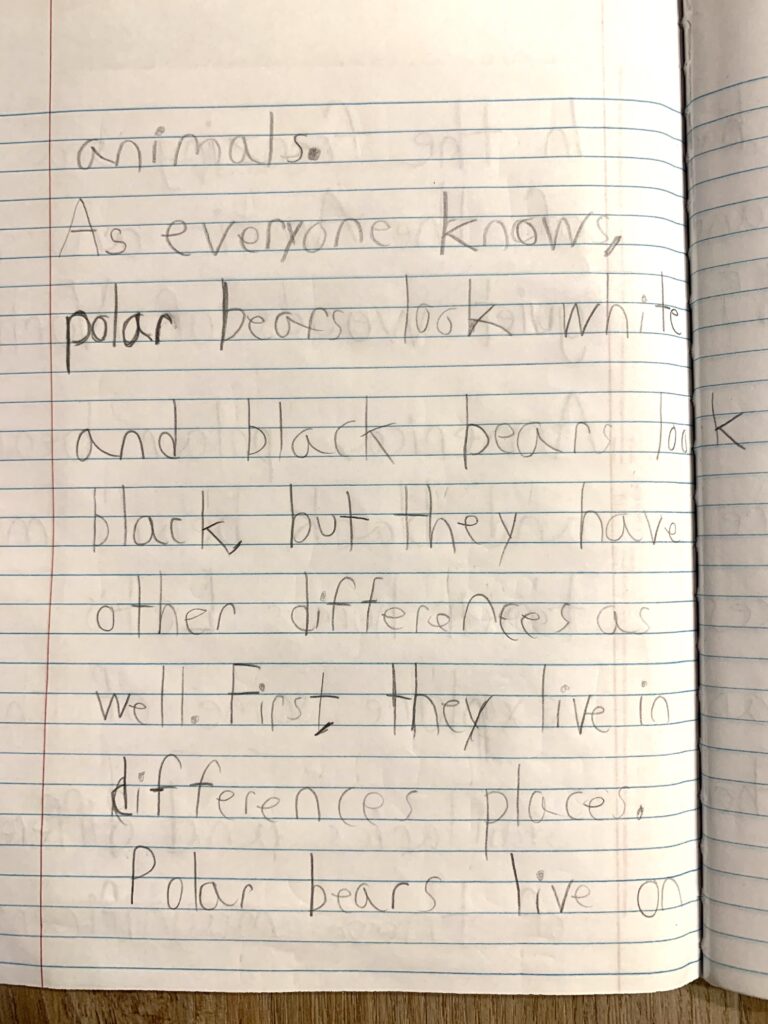 animals.
As everyone knows,
polar bears look white
and black bears look
black, but they have
other differences as
well. First, they live in
differences places.
Polar bears live on